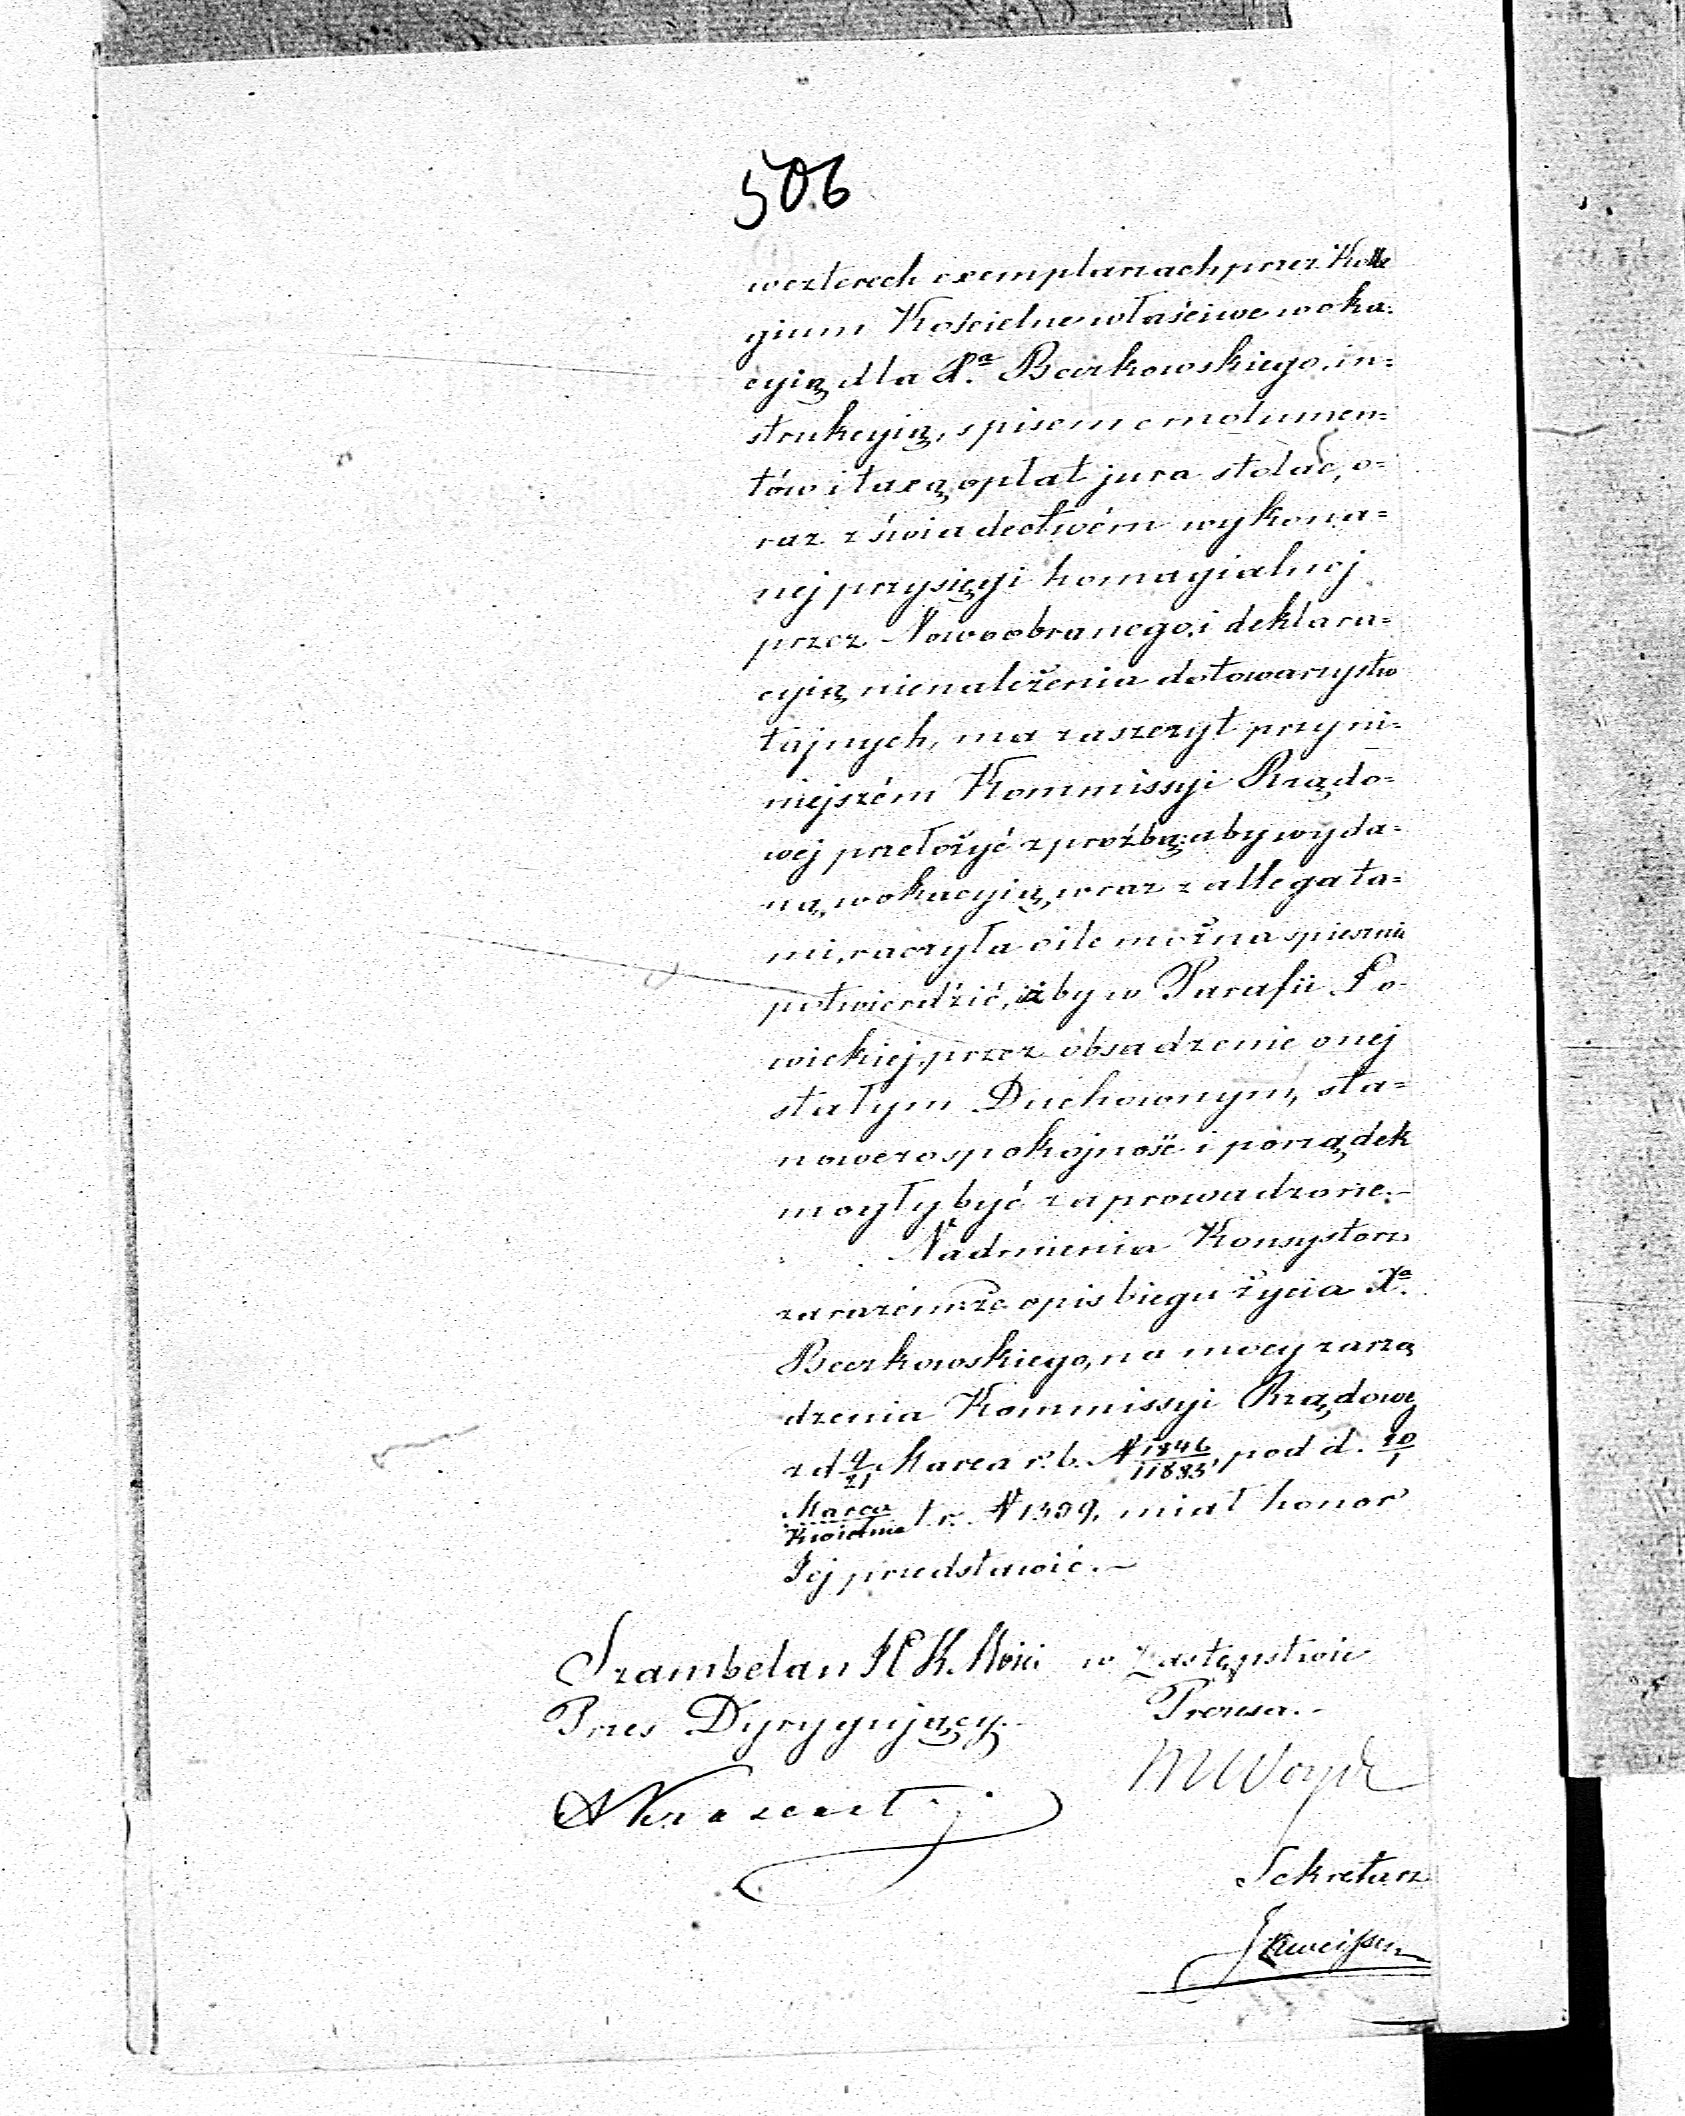 506
w czterech exemplarzach przez Kolle
gium Kościelne właściwe woka-
cyią dla Xa. Boerkowskiego, in=
strukcyią, spisem emolumen=
tów i taxą opłat jura stolae, o=
raz z świadectwém wykona=
nej przysięgi homagialnej
przez Nowoobranego, i deklara=
cyią nienależenia do towarzystw
tajnych, ma zaszczyt przy ni=
niejszém Kommissyi Rządo=
wéj przełożyć z prożbą, aby wyda=
ną wokacyią, wraz z allegata=
mi, raczyła o ile można spiesznie
potwierdzić, iżby w Parafii Ło-
wickiej, przez obsadzenie onej
stałym Duchownym, sta=
nowczo spokojność i porządek
mogły być zaprowadzone.-
Nadmienia Konsystorz
zarazém że opis biegu życia Xa.
Boerkowskiego, na mocy zarzą
dzenia Kommissyi Rządowej
z d 9/21 Marca r. b. N 1846/11883, pod d. 20/1
Marca/Kwietnia t. r. N 1399, miał honor
Jej przedstawić.-
Szambelan J K Mości w Zastępstwie
Prezes Dyrygujący.- Prezesa.-
Sekretarz